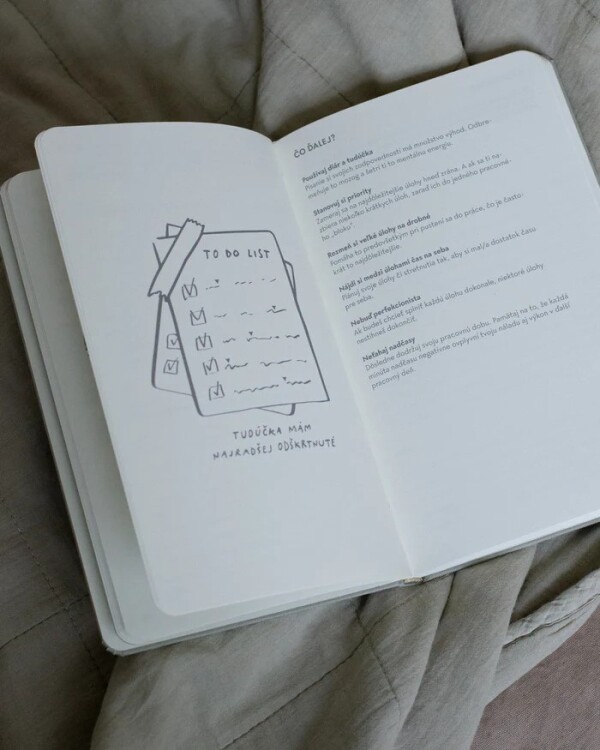 TO DO LIST
TUDÚČKA MÁM
NAJRADŠEJ ODŠKRTNUTÉ
ČO ĎALEJ?
Používaj diár a tudúčka
Písanie si svojich zodpovedností má množstvo výhod. Odbre-
meňuje to mozog a šetrí ti to mentálnu energiu.
Stanovuj si priority
Zameraj sa na najdôležitejšie úlohy hneď zrána. A ak sa ti na-
zbiera niekoľko krátkych úloh, zaraď ich do jedného pracovné-
ho „bloku“.
Rozmeň si veľké úlohy na drobné
Pomáha to predovšetkým pri pustení sa do práce, čo je často-
krát to najdôležitejšie.
Nájdi si medzi úlohami čas na seba
Plánuj svoje úlohy či stretnutia tak, aby si mal/a dostatok času
pre seba.
Nebuď perfekcionista
Ak budeš chcieť splniť každú úlohu dokonale, niektoré úlohy
nestihneš dokončiť.
Neťahaj nadčasy
Dôsledne dodržuj svoju pracovnú dobu. Pamätaj na to, že každá
minúta nadčasu negatívne ovplyvní tvoju náladu aj výkon v ďalší
pracovný deň.